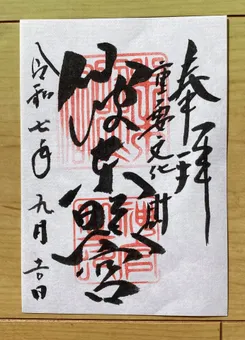 奉拝
重要文化財
仙波東照宮
令和七年 九月 吉日